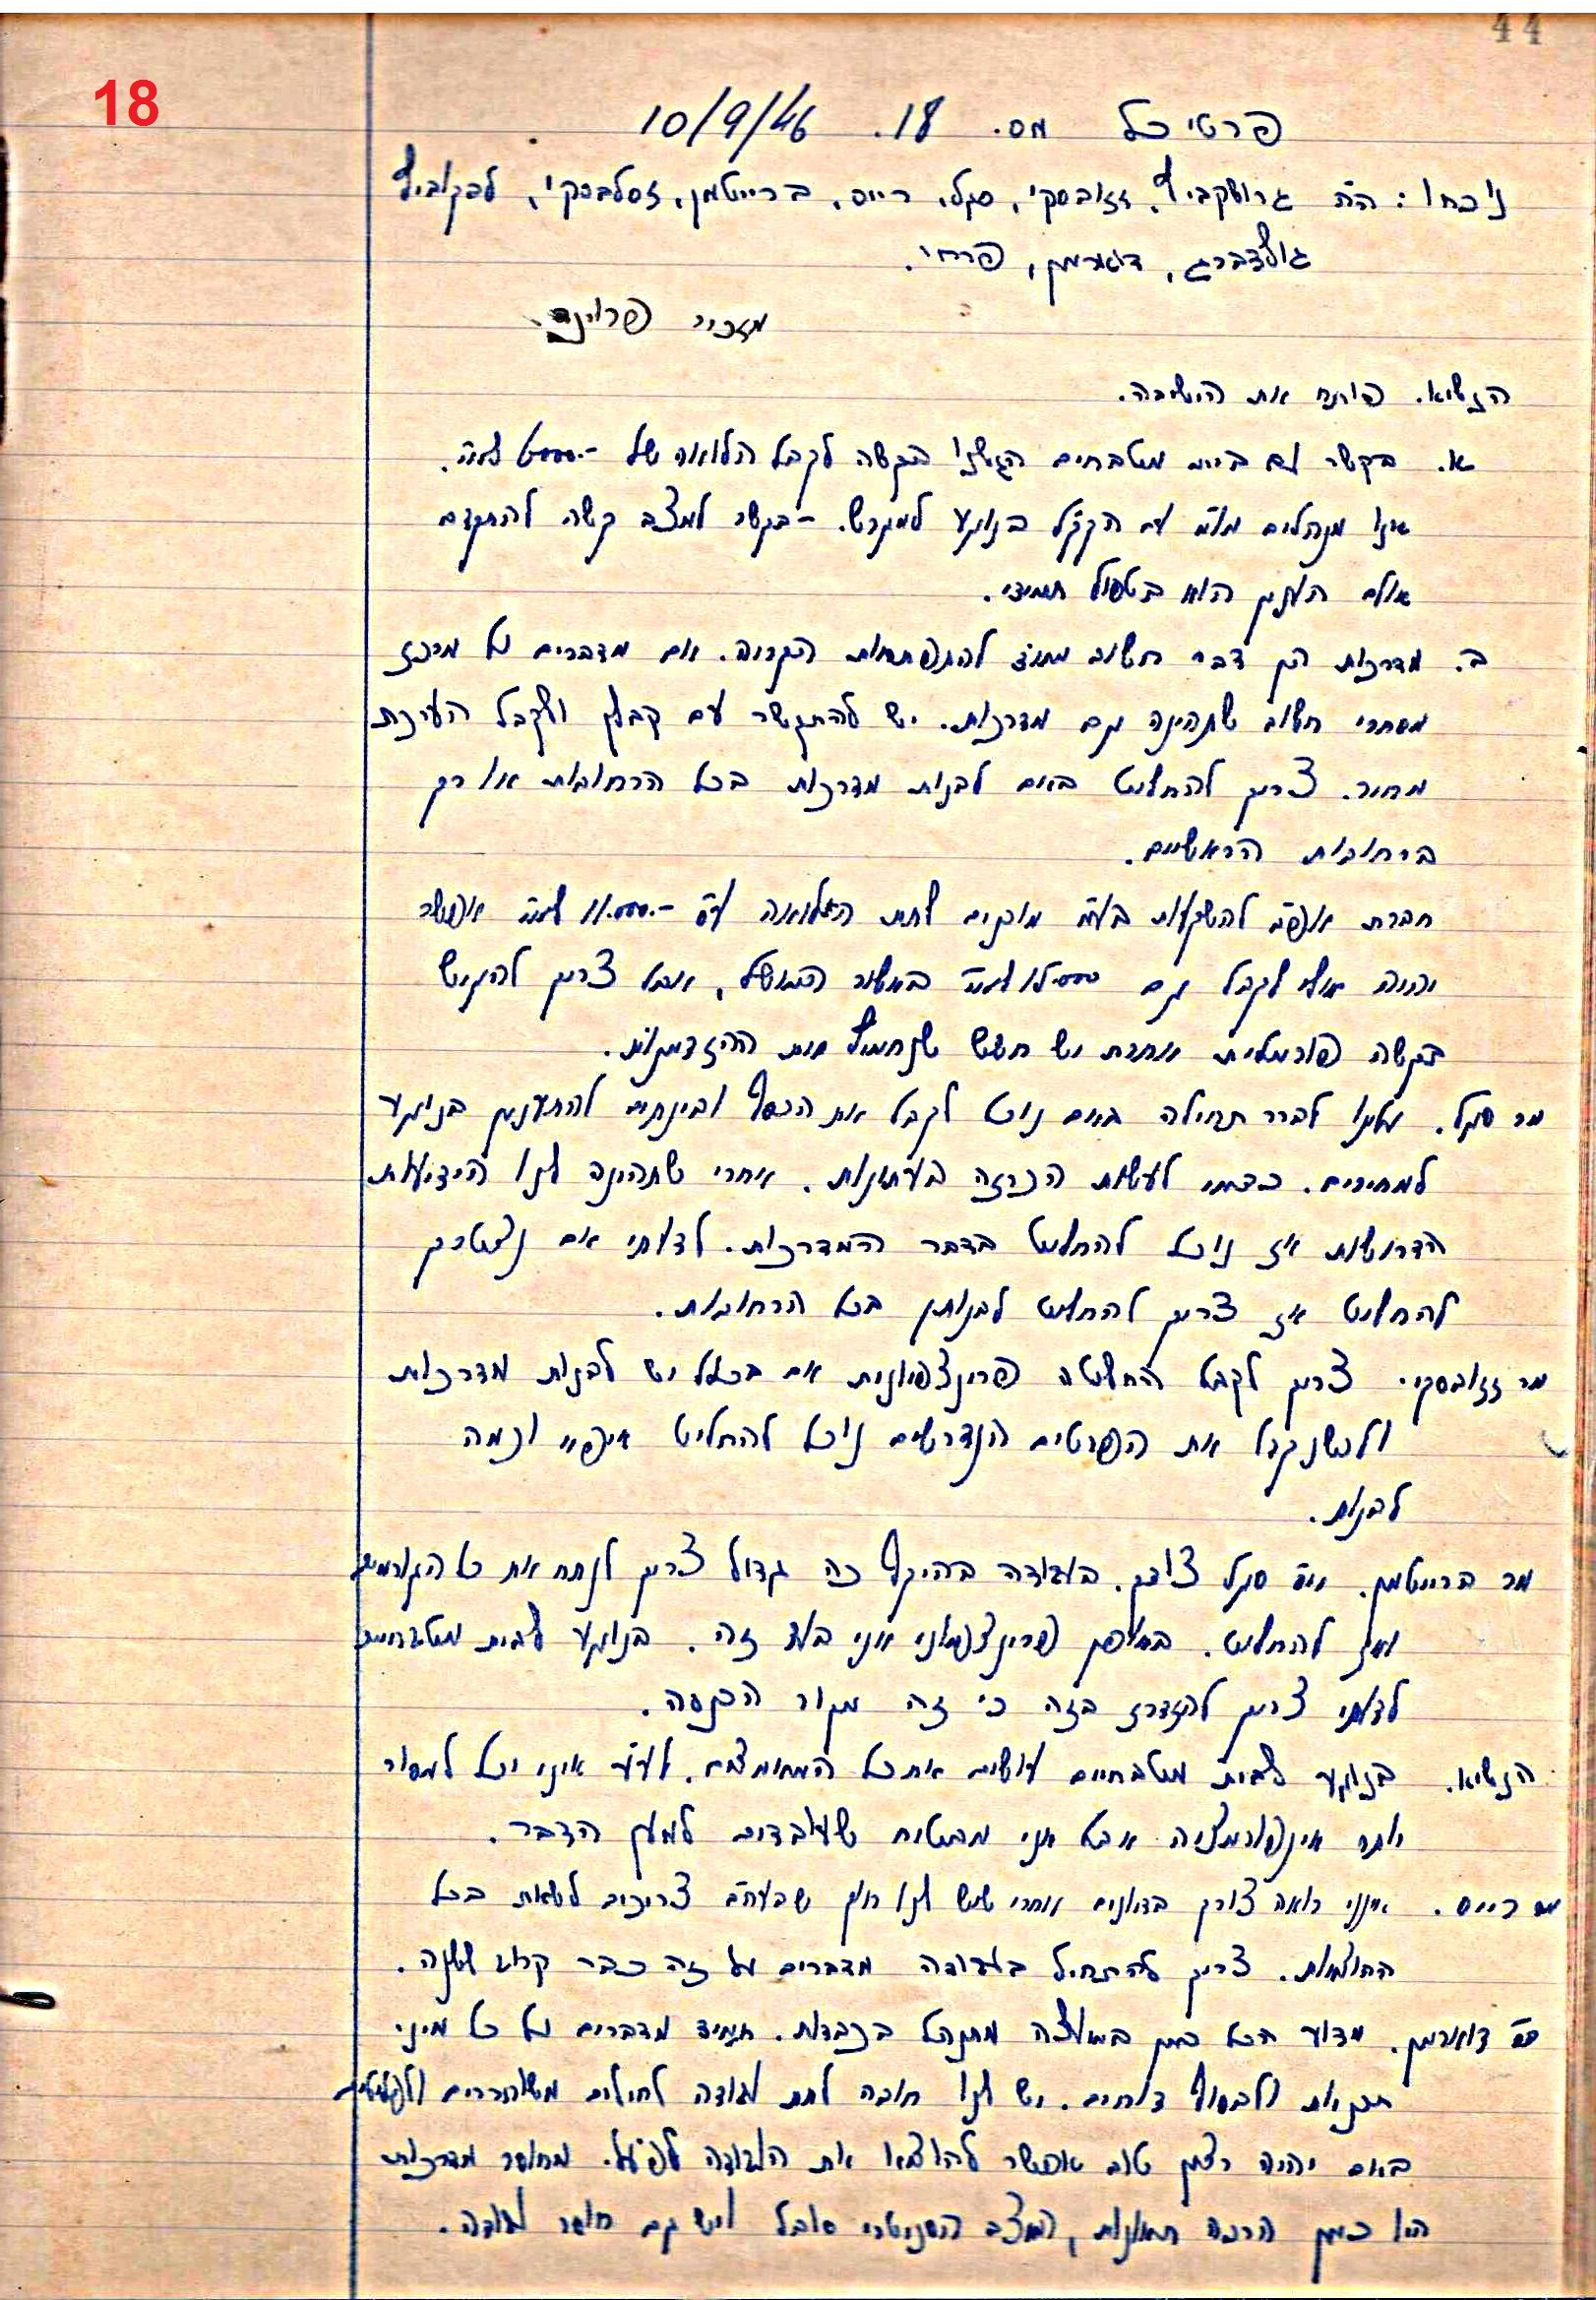 44
18
פרטי כל מס. 18. 10/9/46
נוכחו: ה״ה גרושקביץ, זזובסקי, סגל, רייס, ברייטמן, זסלבסקי, לבקוביץ
גולדברג, דוארמן, פרחי.
מזכיר פרוינד.
הנשיא. פותח את הישיבה.
א. בקשר עם בית מטבחים הגשנו בקשה לקבל הלואה של -.6000 לא״י.
אנו מנהלים מו״מ עם הקק״ל בנוגע למגרש. - בקשר למצב קשה להתקדם
אולם הענין הוא בטפול תמידי.
ב. מדרכות הן דבר חשוב מאוד להתפתחות הקריה. אם מדברים על מרכז
מסחרי חשוב שתהינה גם מדרכות. יש להתקשר עם קבלן ולקבל הערכת
מחיר. צריך להחליט באם לבנות מדרכות בכל הרחובות או רק
ברחובות הראשיים.
חברת אפ״ב להשקעות בע״מ מוכנים לתת הלואה ע״ס -.11.000 לא״י אפשר
יהיה אולי לקבל גם 15.000 לא״י באשור המושל, אבל צריך להגיש
בקשה פורמלית אחרת יש חשש שנחמיץ את ההזדמנות.
מר סגל. עלינו לברר תחילה באם נוכל לקבל את הכסף ובינתים להתענין בנוגע
למחירים. כדאי לעשות הכרזה בעתונות. אחרי שתהינה לנו הידיעות
הדרושות אז נוכל להחליט בדבר המדרכות. לדעתי אם נצטרך
להחליט אז צריך להחליט לבנותן בכל הרחובות.
מר זזובסקי. צריך לקבל החלטה פרינציפיונית אם בכלל יש לבנות מדרכות
ולכשנקבל את הפרטים הנדרשים נוכל להחליט איפה וכמה
לבנות.
מר ברייטמן. ה׳ סגל צודק. בעבודה בהיקף כה גדול צריך לנתח את כל הגורמים
ואז להחליט. באופן פרינציפיוני אני בעד זה. בנוגע לבית מטבחיים
לדעתי צריך להזדרז בזה כי זה מקור הכנסה.
הנשיא. בנוגע לבית מטבחיים עושים את כל המאמצים. לע״ע איני יכל למסור
יותר אינפורמציה אבל אני מבטיח שעובדים למען הדבר.
מר רייס. אינני רואה צורך בדיונים אחרי שיש לנו חוק שבעה״ב צריכים לשאת בכל
ההוצאות. צריך להתחיל בעבודה מדברים על זה כבר קרוב לשנה.
מר דוארמן. מדוע הכל כאן במועצה מתנהל בכבדות. תמיד מדברים על כל מיני
תכניות ולבסוף דוחים. יש לנו חובה לתת עבודה לחיילים משוחררים
באם יהיה רצון טוב אפשר להוציא את העבודה לפועל. מחוסר מדרכות
היו כאן הרבה תאונות, המצב הסניטרי סובל ויש גם חוסר עבודה.